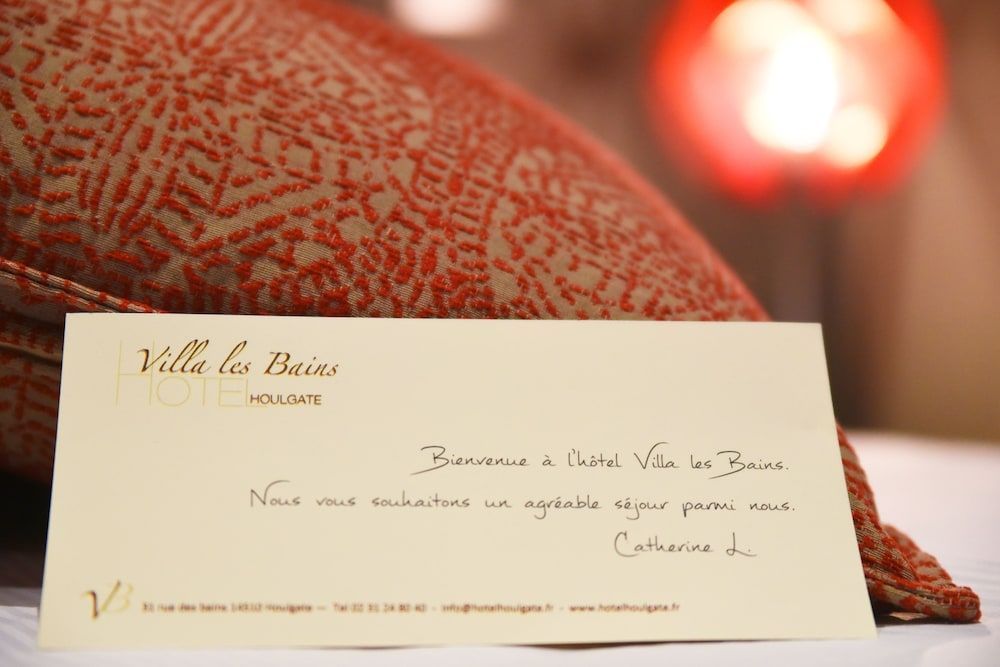 Villa les Bains
HOTEL HOULGATE
Bienvenue à l'hôtel Villa les Bains.
Nous vous souhaitons un agréable séjour parmi nous.
Catherine L.
VB
31 rue des bains 14510 Houlgate — Tel 02 31 24 80 40 - info@hotelhoulgate.fr - www.hotelhoulgate.fr